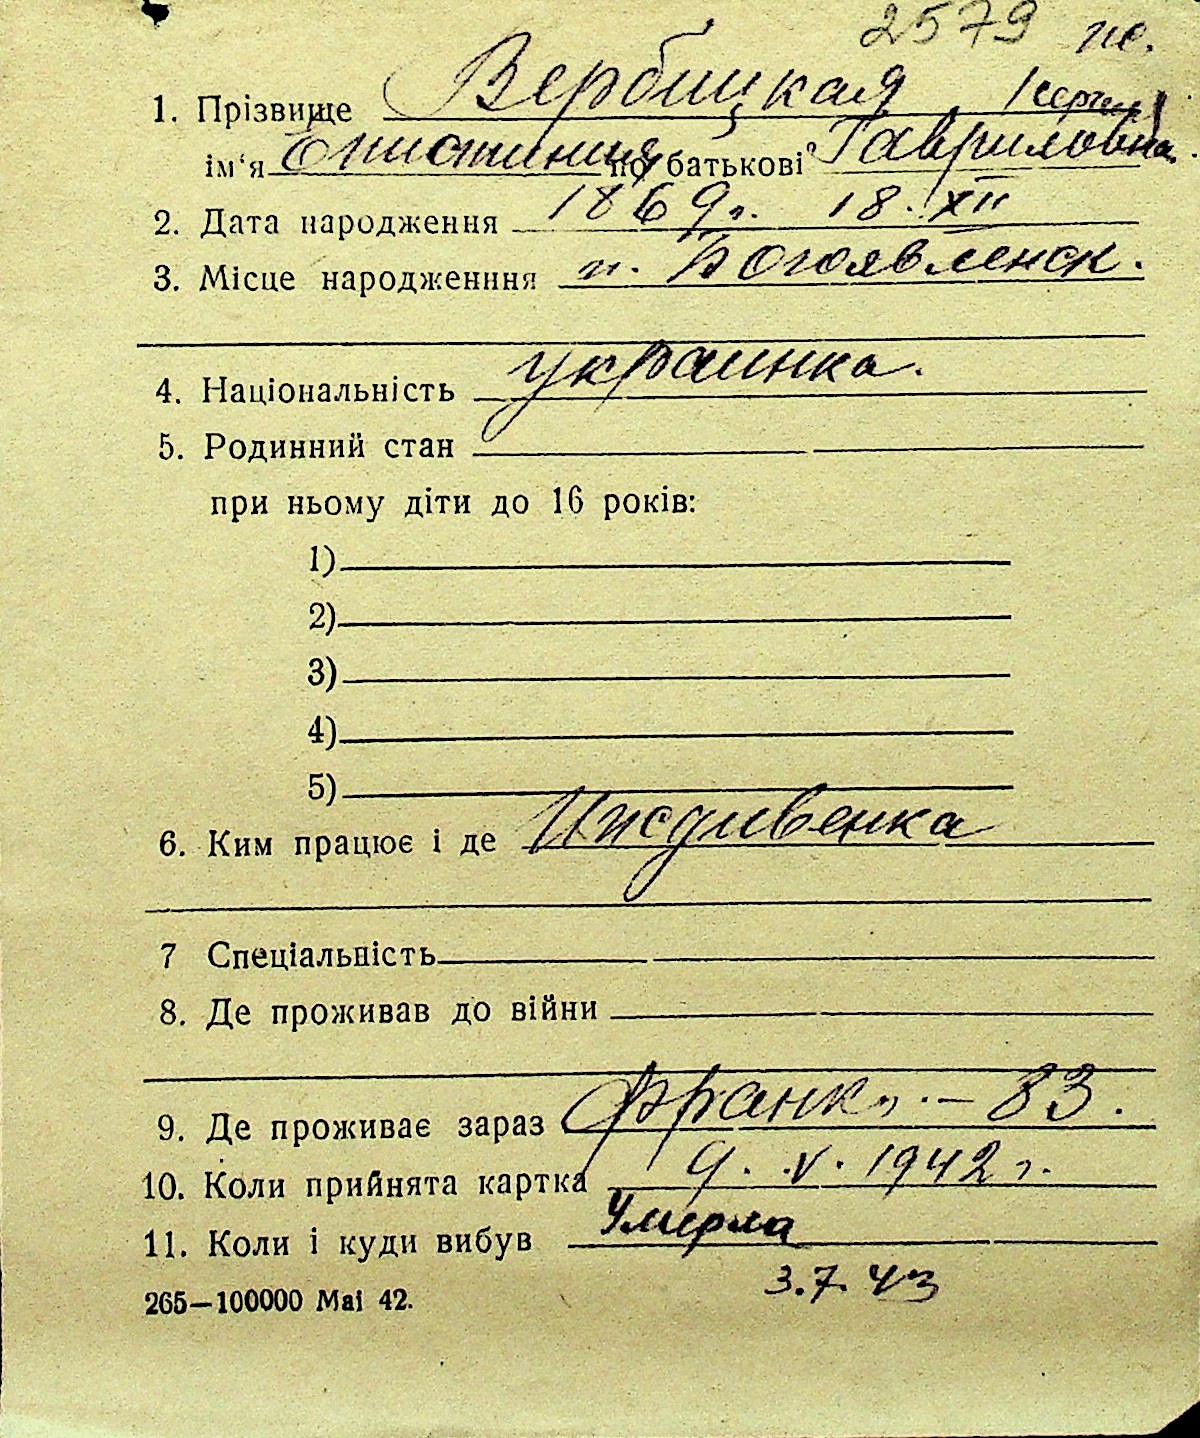 2579 ж.
1. Прізвище Вербицкая
ім‘я по батькові Гавриловна
2. Дата народження 1869 г. 18. XII
3. Місце народженння п. Богоявленск.
4. Національність украинка.
5. Родинний стан
при ньому діти до 16 років:
1)
2)
3)
4)
5)
6. Ким працює і де Иждивенка
7 Спеціальність
8. Де проживав до війни
9. Де проживає зараз Франк. – 83.
10. Коли прийнята картка 9. V. 1942 г.
11. Коли і куди вибув Умерла
3.7.43
265—100000 Mai 42.